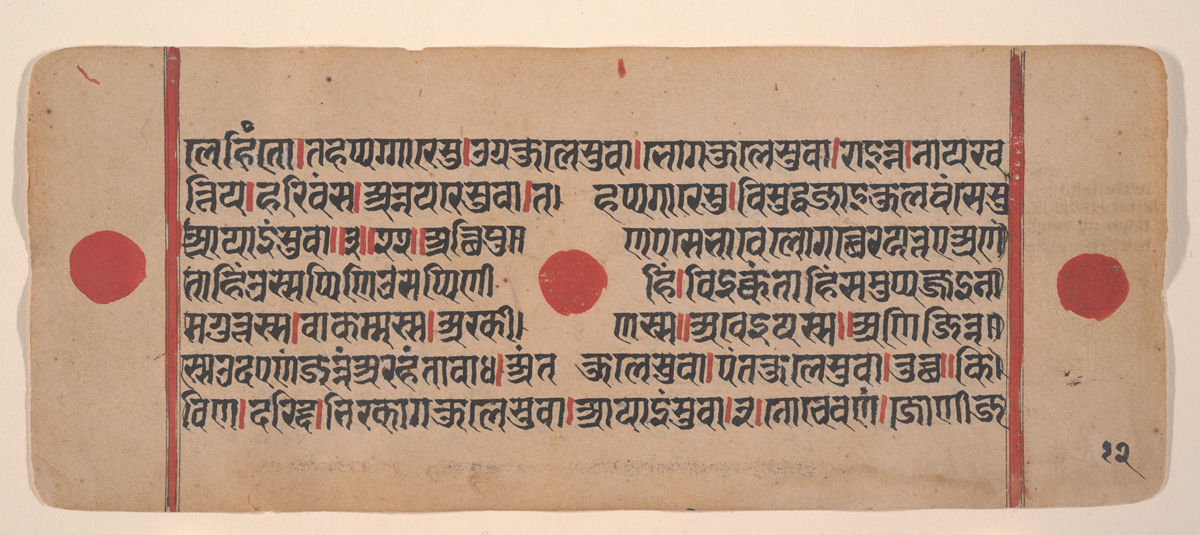 लेहिंतो।तहप्पगारेसु।उग्गकुलेसुवा।भोगकुलेसुवा।राइन्न।नायख
त्तिय।हरिवंस।अन्नयरेसुवा।त। हप्पगारेसु।विसुद्धजाइकुलवंसेसु
आयाइंसुवा॥३॥२२॥अत्थिपु॥ णएसेभावेलोगच्छेरयभूएअणं
ताहिंउस्सप्पिणिउसप्पिणी हिं।विइक्कंताहिंसमुप्पज्जइना
मगुत्तस्स।वाकम्मस्स।अरकी। णस्स॥अवेइयस्स॥अणिज्जिन्न॥
स्सउदएणंजन्नंअरहंतावाध।अंत कुलेसुवा।पंतकुलेसुवा।तुच्छ॥कि।
विण।दरिद्द।भिरकागकुलेसुवा।आयाइंसुवा।३।नोचेवणं।जोणीज
१२